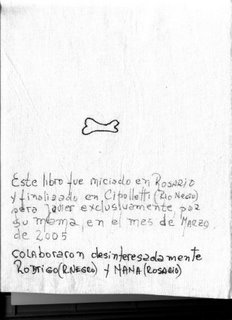 Este libro fue iniciado en ROSARIO
y finalizado en Cipolletti (RIO NEGRO)
para Javier exclusivamente por
su mama, en el mes de MARZO
de 2005
COLABORARON desinteresadamente
RODRIGO (R. NEGRO) Y NANA (ROSARIO)